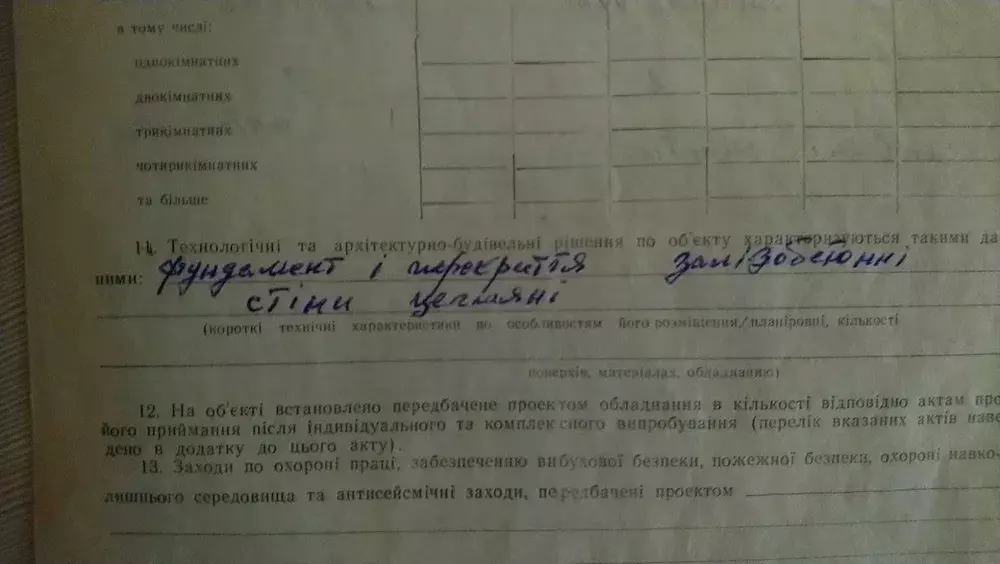 в тому числі:
однокімнатних
двокімнатних
трикімнатних
чотирикімнатних
та більше
11. Технологічні та архітектурно-будівельні рішення по об'єкту характеризуються такими да-
ними: фундамент і перекриття залізобетонні
стіни цегляні
(короткі технічні характеристики по особливостям його розміщення, планіровці, кількості
поверхів, матеріалах, обладнанню)
12. На об'єкті встановлено передбачене проектом обладнання в кількості відповідно актам про
його приймання після індивідуального та комплексного випробування (перелік вказаних актів наве-
дено в додатку до цього акту).
13. Заходи по охороні праці, забезпеченню вибухової безпеки, пожежної безпеки, охороні навко-
лишнього середовища та антисейсмічні заходи, передбачені проектом